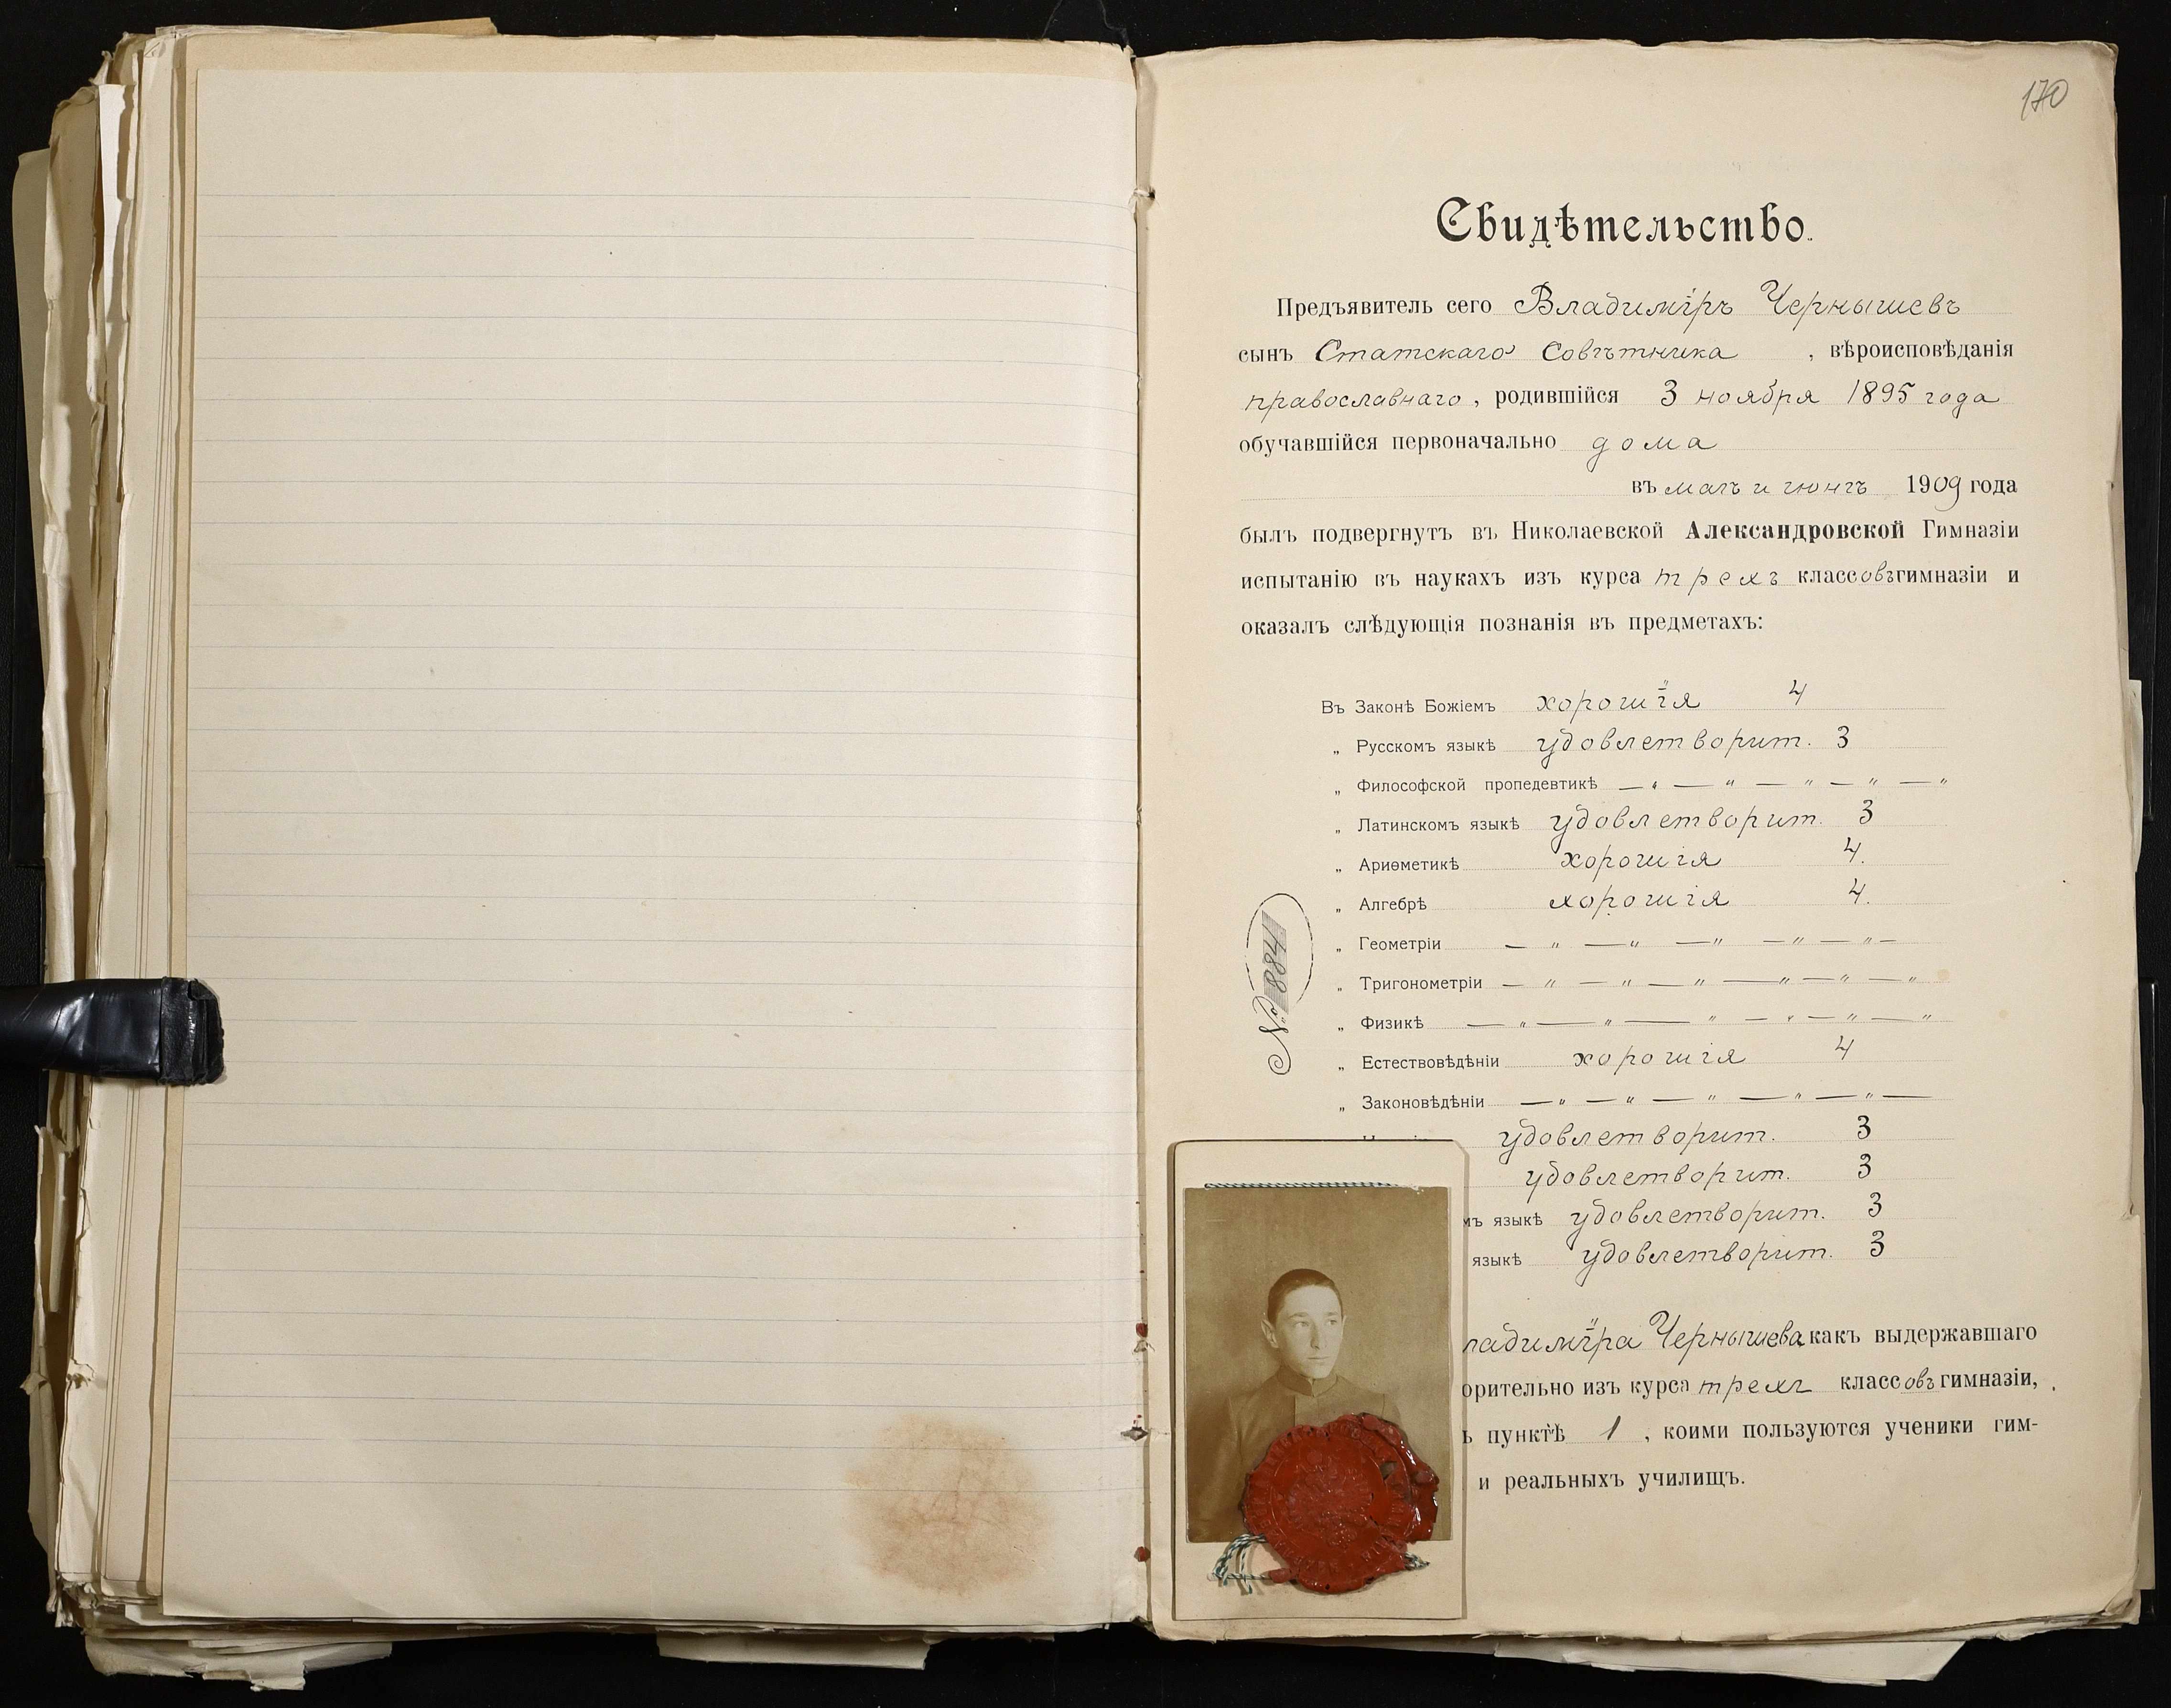 170
Свидѣтельство.
Предъявитель сего Владимiръ Чернышевъ
сынъ Статскаго Совѣтника , вѣроисповѣданія
православнаго, родившійся 3 ноября 1895 года
обучавшійся первоначально дома
въ маѣ и іюнѣ 1909 года
былъ подвергнутъ въ Николаевской Александровской Гимназіи
испытанію въ наукахъ изъ курса трехъ классовъ гимназіи и
оказалъ слѣдующія познанія въ предметахъ:
Въ Законѣ Божіемъ хорошія 4
„ Русскомъ языкѣ удовлетворит. 3
„ Философской пропедевтикѣ — „ — „ — „ — „ — „
„ Латинскомъ языкѣ удовлетворит. 3
„ Ариѳметикѣ хорошія 4.
„ Алгебрѣ хорошія 4.
„ Геометріи — „ — „ — „ — „ — „ —
„ Тригонометріи — „ — „ — „ — „ — „ — „
„ Физикѣ — „ — „ — „ — „ — „ — „
„ Естествовѣдѣніи хорошія 4
„ Законовѣдѣніи — „ — „ — „ — „ — „ —
удовлетворит. 3
удовлетворит. 3
мъ языкѣ удовлетворит. 3
языкѣ удовлетворит. 3
ладиміра Чернышева какъ выдержавшаго
орительно изъ курса трехъ классовъ гимназіи,
ъ пунктѣ 1 , коими пользуются ученики гим-
и реальныхъ училищъ.
№ 8841